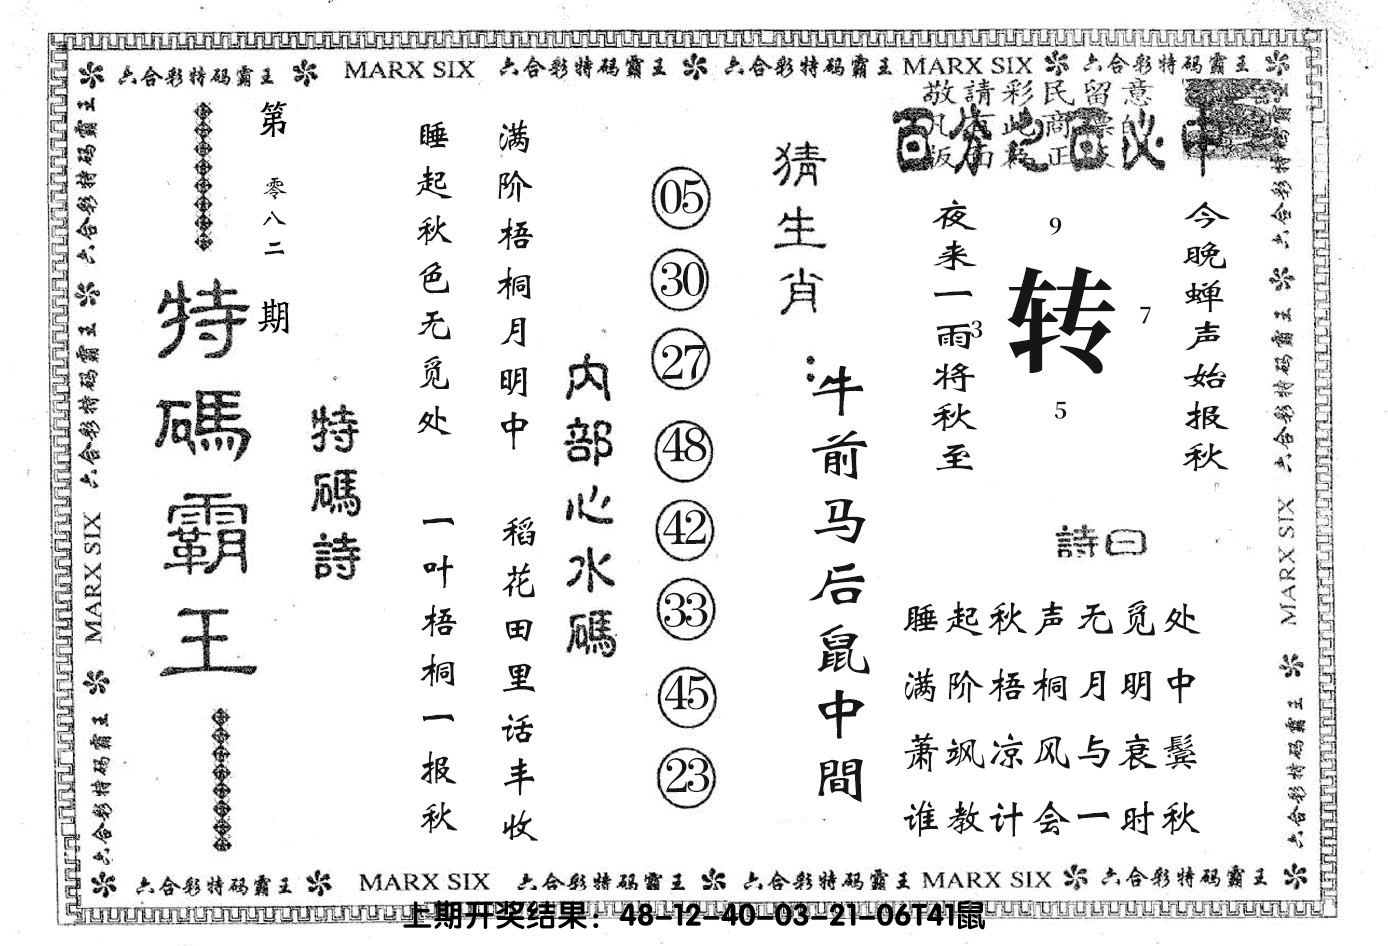 六合彩特码霸王 MARX SIX 六合彩特码霸王 六合彩特码霸王 MARX SIX 六合彩特码霸王
敬請彩民留意
百分之百必中
第零八二期
特碼霸王
特碼詩
睡起秋色无觅处
一叶梧桐一报秋
满阶梧桐月明中
稻花田里话丰收
内部心水碼
05
30
27
48
42
33
45
23
猜生肖：
牛前马后鼠中間
夜来一雨将秋至
9
3
转
7
5
今晚蝉声始报秋
詩曰
睡起秋声无觅处
满阶梧桐月明中
萧飒凉风与衰鬓
谁教计会一时秋
六合彩特码霸王 六合彩特码霸王 MARX SIX 六合彩特码霸王
六合彩特码霸王 六合彩特码霸王 MARX SIX 六合彩特码霸王
六合彩特码霸王 MARX SIX 六合彩特码霸王 六合彩特码霸王 MARX SIX 六合彩特码霸王
上期开奖结果：48-12-40-03-21-06T41鼠